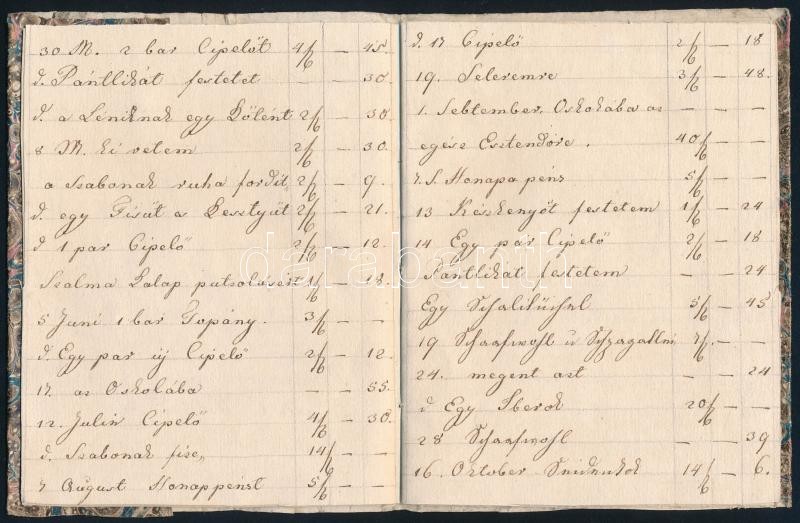 30 M. 2 bar Cipelőt 4/6 — 45.
d. Pántlikát festetet — 30.
d. a Léniknak egy Kölént 2/6 — 30.
8 M. ki vetem 2/6 — 30.
a Szabonak ruha fordit, 2/6 — 9.
d. egy Fisüt a Kesztyüt 2/6 — 21.
d 1 par Cipelő 2/6 — 12.
Szalma Kalap putsolásért 1/6 — 18.
5 Juni 1 bar Topány. 3/6 — —
d. Egy par új Cipelő 2/6 — 12.
17 az Oskolába — — 55.
12. Julir Cipelő 4/6 — 30.
d. Szabonak fise, 14/6 — —
7 August Honappénzt 5/6 — —
d. 17 Cipelő 2/6 — 18
19. Seleremre 3/6 — 48.
1. Sebtember. Oskolába az — — —
egész Esztendőre. 40/6 — —
7. S. Honapa pénz 5/6 — —
13 Készkenyőt festetem 1/6 — 24
14 Egy pár Cipelő 2/6 — 18
Pántlikát festetem — — 24
Egy Schalitüchel 5/6 — 45
19 Schaafwohl u 7/6. — —
24. megent azt — — 24
d Egy Iberok 20/6 — —
28 Schaafwohl — — 39
16. Oktober 14/6 — 6.
darabanth